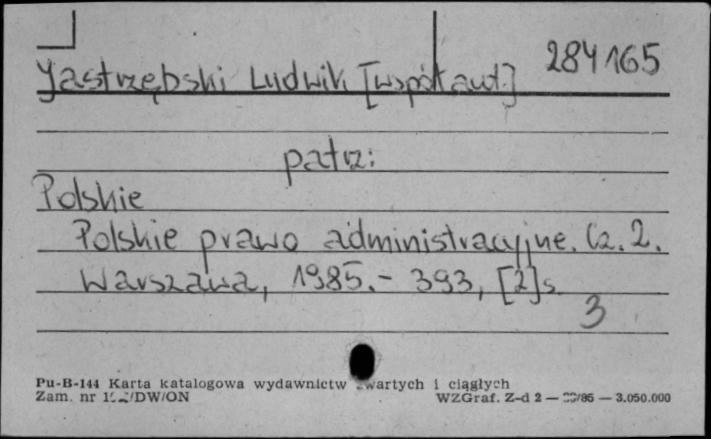 284165
Jastrzębski Ludwik [współaut.]
patrz:
Polskie
Polskie prawo administracyjne. Cz. 2.
Warszawa, 1985.- 393, [2]s.
3
Pu-B-144 Karta katalogowa wydawnictw zwartych i ciągłych
Zam. nr /DW/ON WZGraf. Z-d 2 — /85 — 3.050.000